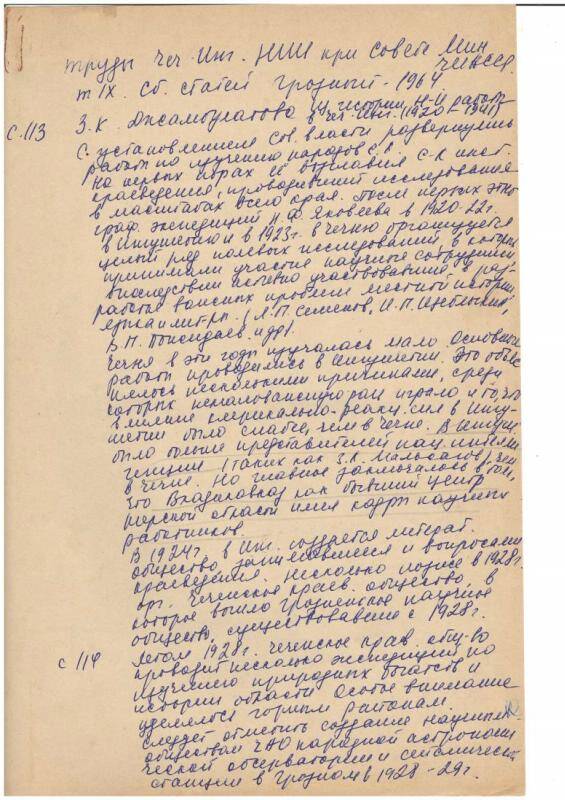 Труды Чеч. Инг. НИИ при Совете Мин ЧИАССР.
т IX. Сб. статей Грозный - 1964
с.113 З.К. Джамбулатова Из истории Н-И работ
в Чеч-Инг. (1920-1941)
С установлением Сов. власти развернулись
работы по изучению народов С.К.
На первых порах её возглавил С-К инст.
краеведения, проводивший исследования
в масштабах всего края. После первых этно
граф. экспедиций Н.Ф. Яковлева в 1920-22г.
в Ингушетию и в 1923г. в Чечню организуется
целый ряд полевых исследований, в которых
принимали участие научные сотрудники,
впоследствии активно участвовавшие в раз-
работке важных проблем местной истории
языка и литры. (Л.П. Семенов, И.П. Щеблыкин,
и др.
Чечня в эти годы изучалась мало. Основные
работы проводились в Ингушетии. Это объяс
нялось несколькими причинами, среди
которых немаловажную роль играло и то, что
влияние клерикально-реакц. сил в Ингу-
шетии было слабее, чем в Чечне. В Ингуш
было больше представителей нац. интелли
генции (таких как З.К. Мальсагов) чем
в Чечне. Но главное заключалось в том,
что Владикавказ как бывший центр
Терской области имел кадры научных
работников.
В 1924г. в Инг. создается литерат.
общество, занимавшееся и вопросами
краеведения. Несколько позже в 1928г.
орг. Чеченское краев. общество, в
которое вошло Грозненское научное
общество, существовавшее с 1928г.
с 114 Летом 1928г. Чеченское краев. общ-во
проводит несколько экспедиций по
изучению природных богатств и
истории области Особое внимание
уделялось горным районам.
Следует отметить создание научным
обществом ЧАО народной астрономи
ческой обсерватории и сейсмическ.
станции в Грозном в 1928-29г.